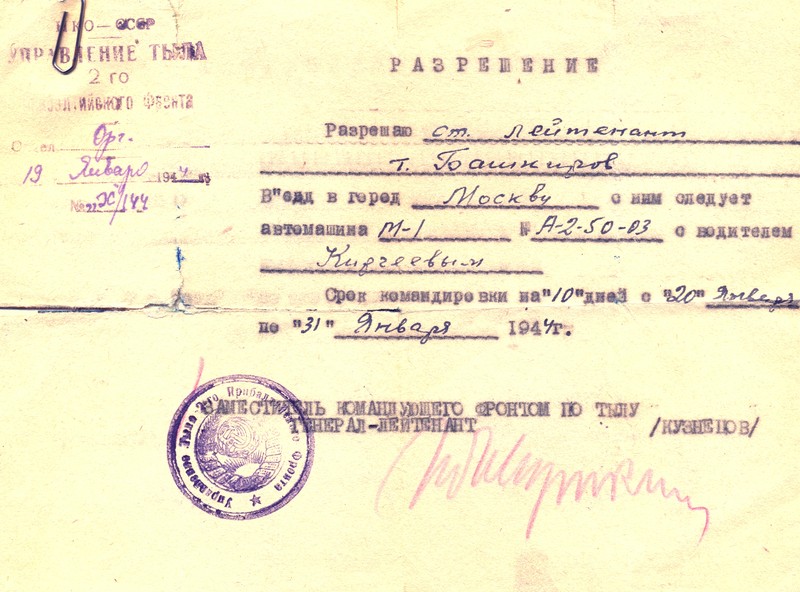 НКО—СССР
УПРАВЛЕНИЕ ТЫЛА
2 го
Прибалтийского Фронта
Отдел Орг.
19 Январо 1944
№
РАЗРЕШЕНИЕ
Разрешаю ст. лейтенант
т. Башкиров
В"езд в город Москву с ним следует
автомашина М-1 № А-2-50-03 с водителем
Срок командировки на "10" дней с "20" Января
по "31" Января 1944г.
ЗАМЕСТИТЕЛЬ КОМАНДУЮЩЕГО ФРОНТОМ ПО ТЫЛУ
ГЕНЕРАЛ-ЛЕЙТЕНАНТ /КУЗНЕЦОВ/
Управление Тыла 2-го Прибалтийского Фронта